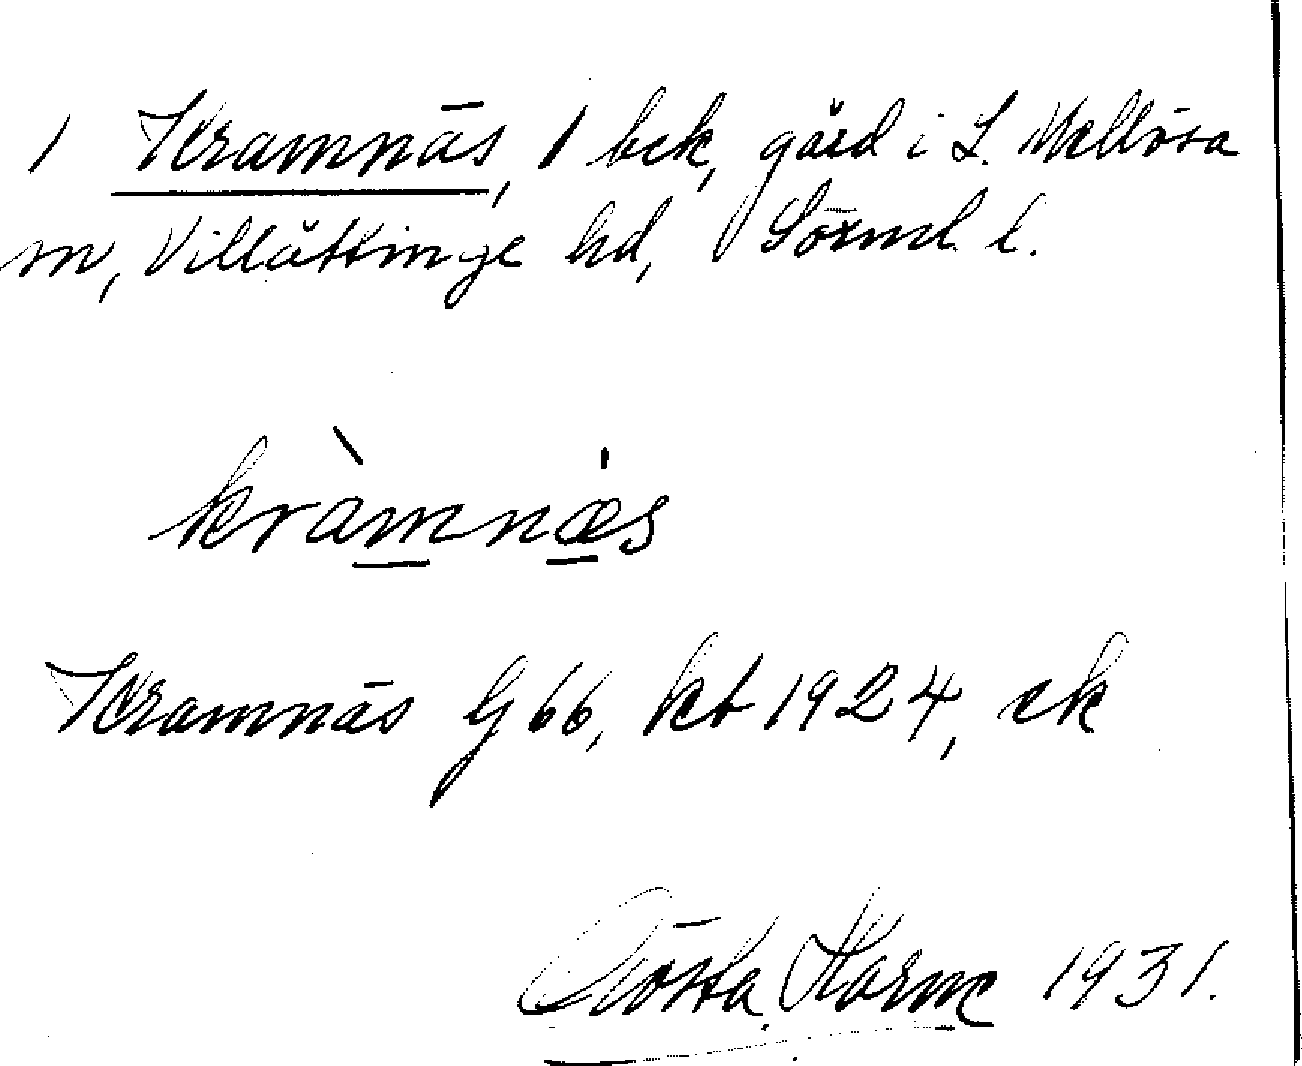 1 Kramnäs, 1 bck, gård i L. Mellösa
sn, Villåttinge hd, Sörml. l.
kràmnæs
Kramnäs G 66, kb 1924, ek
Gösta 1931.